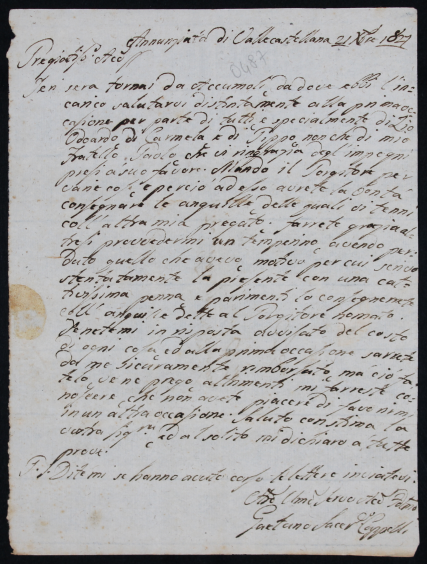 Annunziata di Vallecastellana 21 Xbre 18
Pregiatiss.
Jer sera tornai da Accumoli da dove ebbi l'in-
carico salutarvi distintamente alla prima oc-
casione per parte di tutti e specialmente di Zio
Odoardo di Carmela e di Pippo nonchè di mio
Fratello Paolo che vi ringrazia degl'impegni
presi a suo favore. Mando il per
perciò adesso avrete la bontà
consegnare le anguille delle quali vi tenni
coll'altra mia pregato. Farete grazia al-
tresì provvedermi un temperino, avendo per-
duto quello che avevo, motivo per cui scrivo
stentatamente la presente con una cat-
tivissima penna e parimenti lo consegnerete
coll'anguille dette al Servitore
Tenetemi in risposta avvisato del costo
di ogni cosa, ed alla prima occasione sarete
da me sicuramente rimborsato, ma ciò fa-
telo, ve ne prego, altrimenti mi fareste co-
noscere che non avete piacere di favorirmi
in un altra occasione. Saluto con stima la
vostra Sig.ra ed al solito mi dichiaro a tutte
prove
P.S. Ditemi se hanno avuto corso le lettere inviatevi.
Gaetano Cappelli
0487